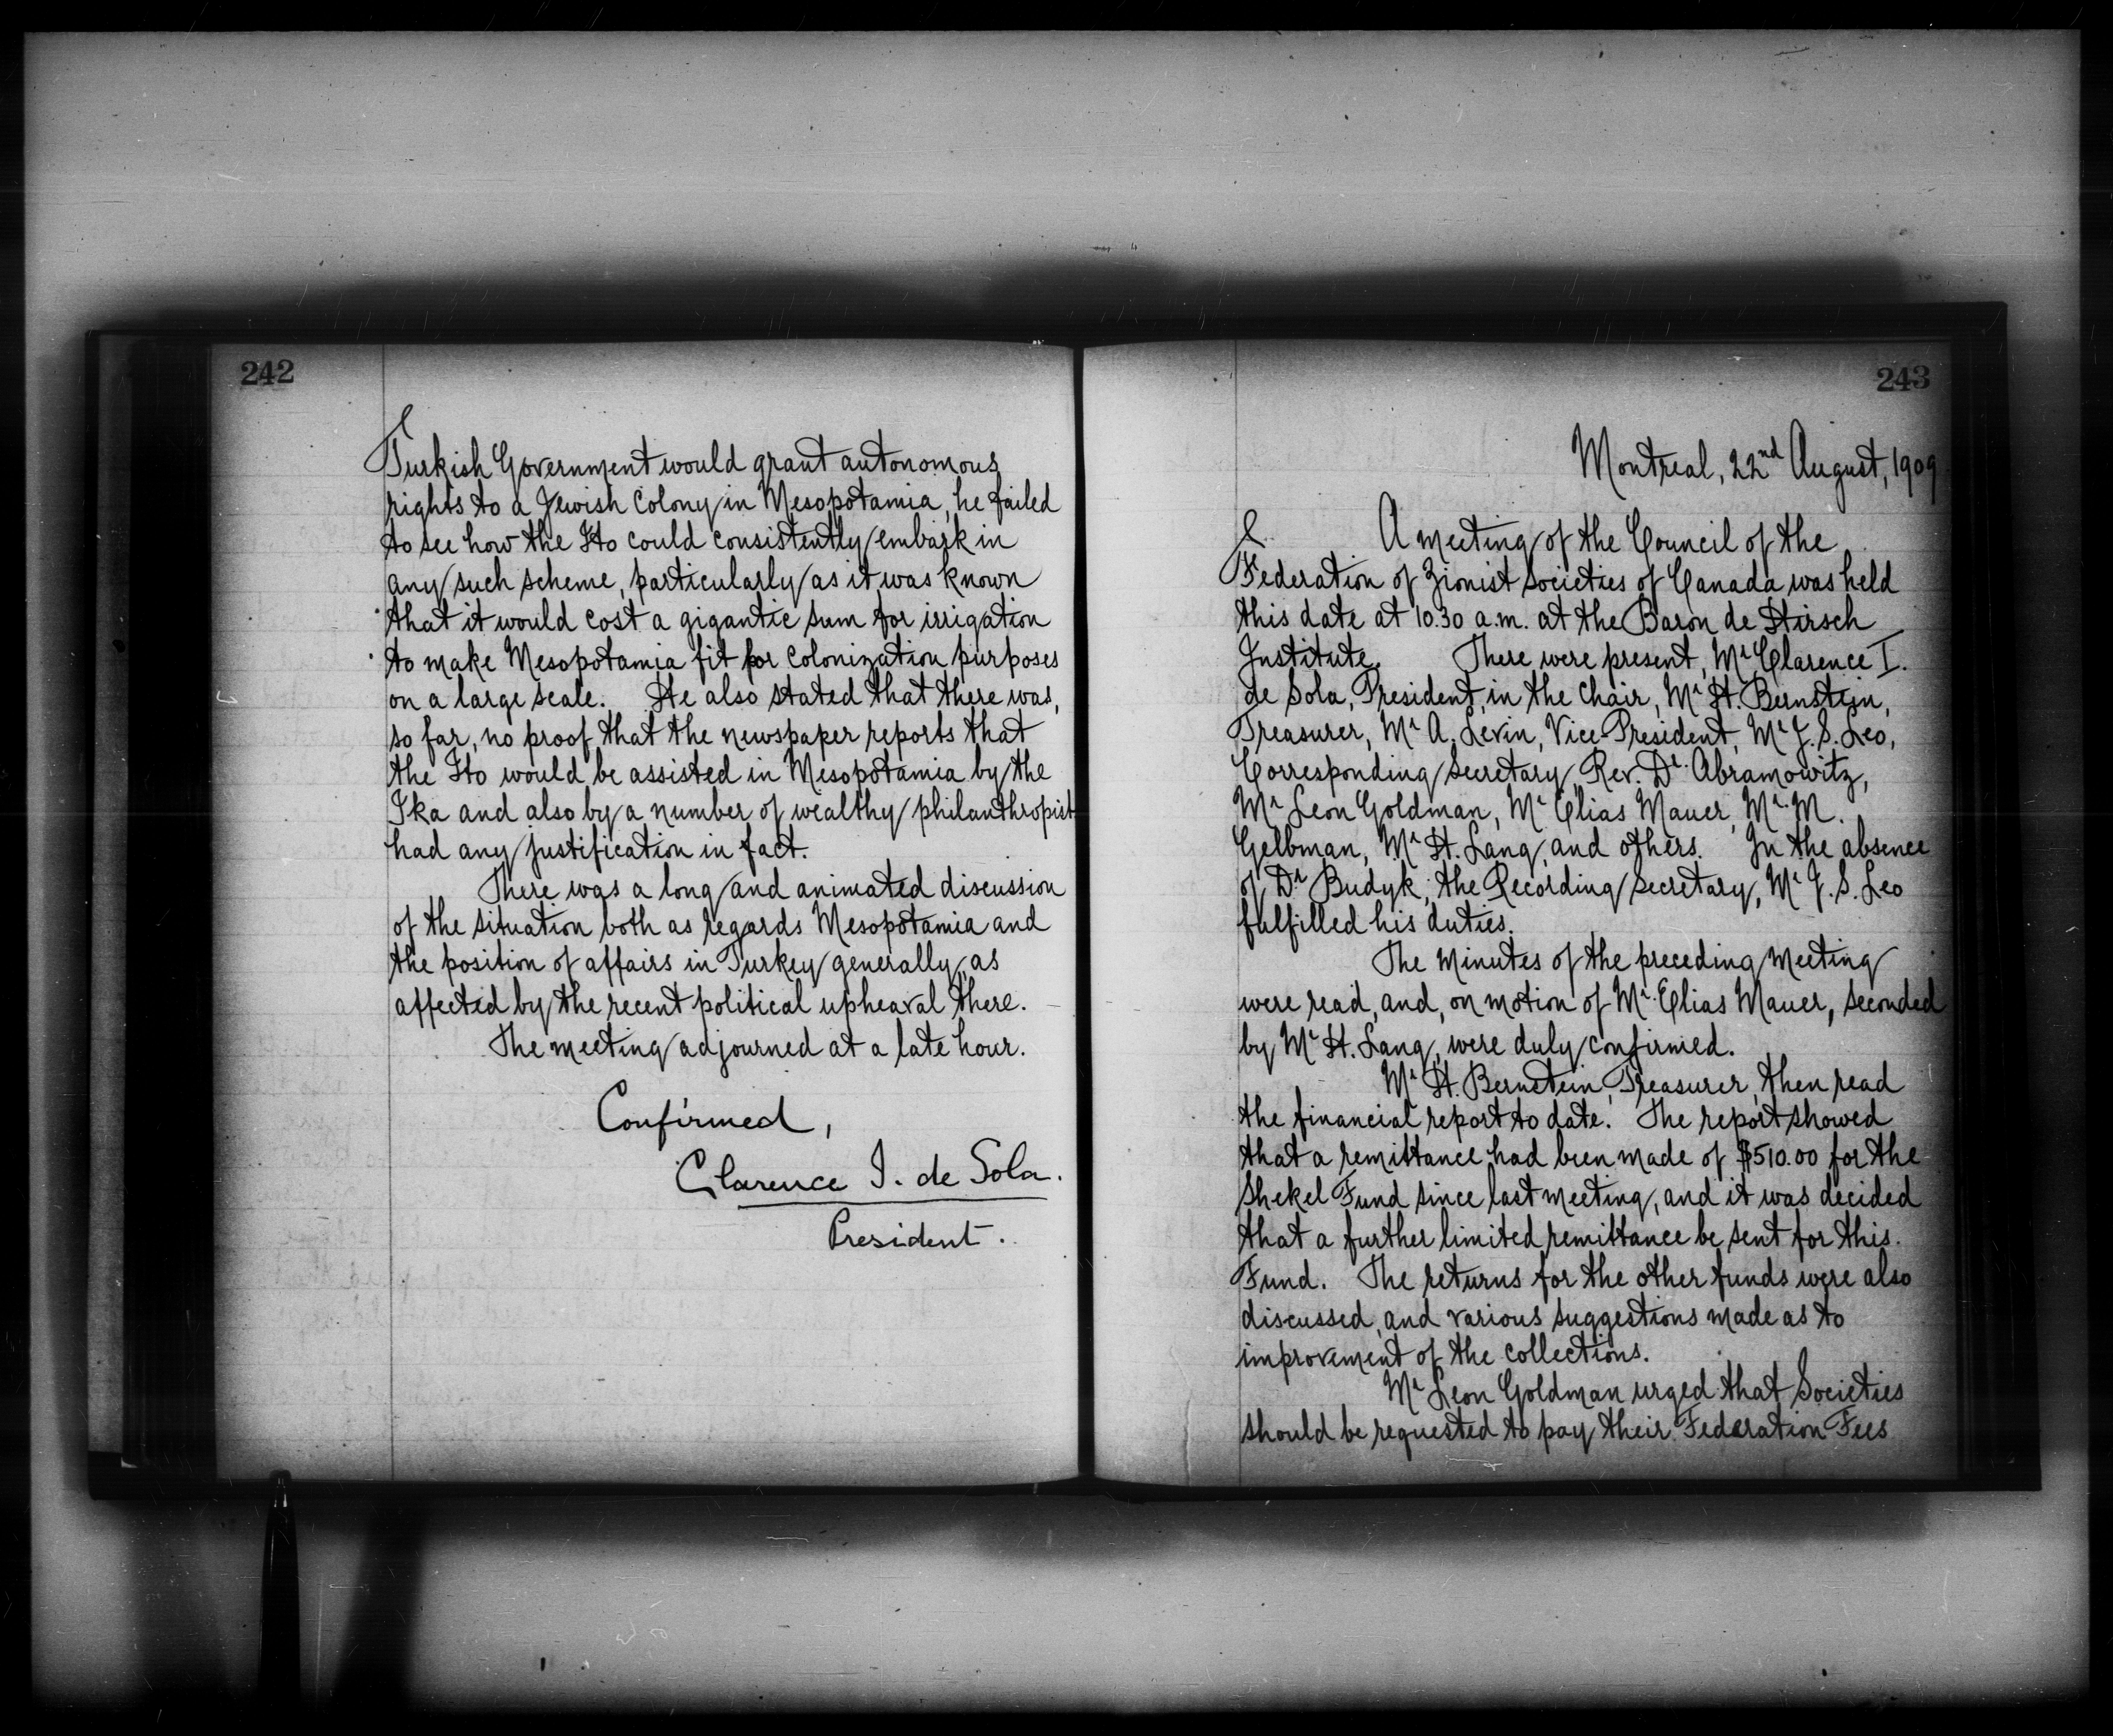 242
Turkish Government would grant autonomous
rights to a Jewish Colony in Mesopotamia, he failed
to see how the Ito could consistently embark in
any such scheme, particularly as it was known
that it would cost a gigantic sum for irrigation
to make Mesopotamia fit for colonization purposes
on a large scale. He also stated that there was,
so far, no proof that the newspaper reports that
the Ito would be assisted in Mesopotamia by the
Ika and also by a number of wealthy philanthropist
had any justification in fact.
There was a long and animated discussion
of the situation both as regards Mesopotamia and
the position of affairs in Turkey generally, as
affected by the recent political upheaval there.
The meeting adjourned at a late hour.
Confirmed,
Clarence I. de Sola.
President.
243
Montreal, 22nd August, 1909
A meeting of the Council of the
Federation of Zionist Societies of Canada was held
this date at 10.30 a.m. at the Baron de Hirsch
Institute. There were present, Mr Clarence I.
de Sola, President, in the Chair, Mr H. Bernstein,
Treasurer, Mr A. Levin, Vice-President, Mr J. S. Leo,
Corresponding Secretary, Rev. Dr. Abramowitz,
Mr Leon Goldman, Mr Elias Mauer, Mr. M.
Gelbman, Mr H. Lang, and others. In the absence
of Dr Budyk, the Recording Secretary, Mr J. S. Leo
fulfilled his duties.
The Minutes of the preceding Meeting
were read, and, on motion of Mr. Elias Mauer, seconded
by Mr H. Lang, were duly confirmed.
Mr H. Bernstein, Treasurer, then read
the financial report to date. The report showed
that a remittance had been made of $510.00 for the
Shekel Fund since last meeting, and it was decided
that a further limited remittance be sent for this
Fund. The returns for the other funds were also
discussed, and various suggestions made as to
improvement of the collections.
Mr Leon Goldman urged that Societies
should be requested to pay their Federation Fees